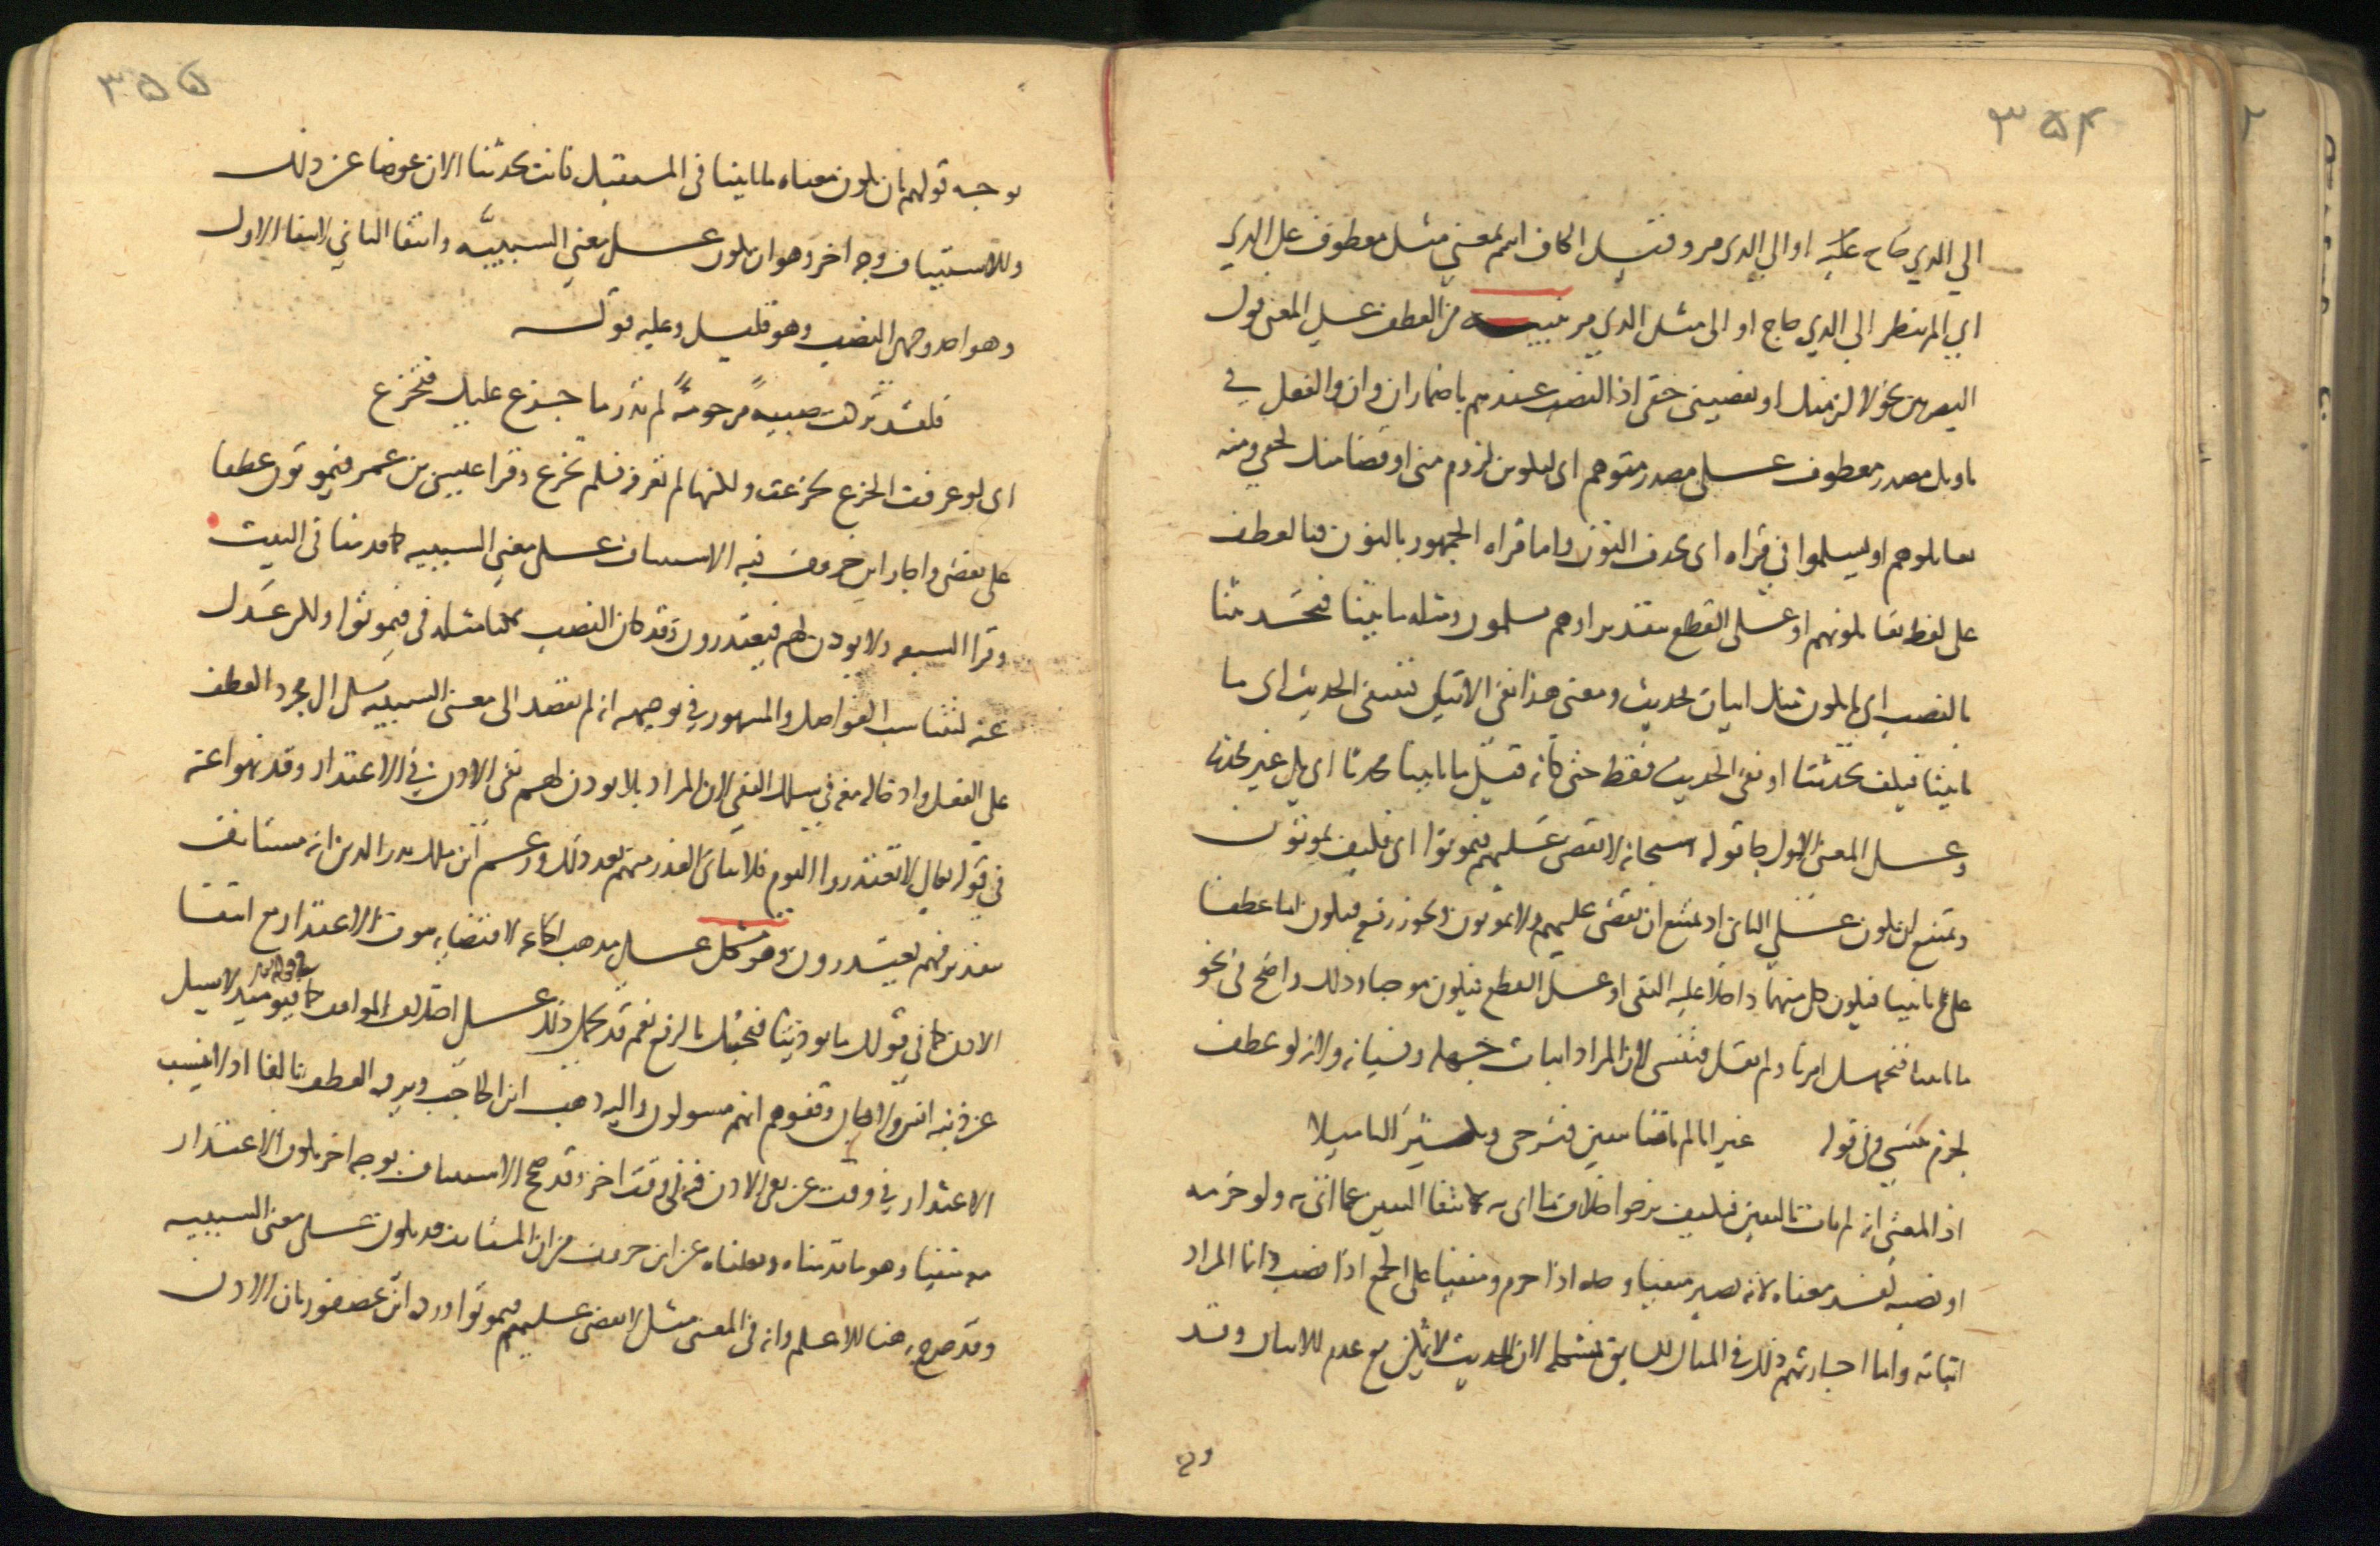 ٣٥٤
الي الذي حاج عليه او الي الذي مر وقيل الكاف اسم بمعني مثل معطوف علي الذي
اي الم تنظر الي الذي حاج او الى مثل الذي مر تنبيه من العطف علي المعنى قول
البصريين نحو لالزمنك او تقضيني حقى اذ النصب عندهم باضمار ان وان والفعل في
تاويل مصدر معطوف على مصدر متوهم اى ليكونن لزوم منى او قضا منك لحقي ومنه
تقاتلوهم او يسلموا في قراه اى بحذف النون واما قراه الجمهور بالنون فبالعطف
على لفظ تقاتلونهم او على القطع بتقدير او هم يسلمون ومثله ما تاتينا فتحدثنا
بالنصب اي ما يكون منك اتيان فحديث ومعنى هذا نفى الاتيان فينتفى الحديث اى ما
تاتينا فكيف تحدثنا او نفى الحديث فقط حتى كانه قيل ما تاتينا محدثا اي بل غير محدث
وعلى المعنى الاول جا قوله سبحانه لا يقضى عليهم فيموتوا اى فكيف يموتون
ويمتنع ان يكون على الثاني اذ يمتنع ان يقضى عليهم ولا يموتون ويجوز رفعه فيكون اما عطفا
على تاتينا فيكون كل منهما داخلا عليه النفى او على القطع فيكون موجبا وذلك واضح فى نحو
ما تاتينا فتجهل امرنا ولم تقرا فتنسى لان المراد اثبات جهله ونسيانه ولانه لو عطف
لجزم تنسى وفى قوله غير انا لم تاتنا بيقين فنرجى ونكثر التاميلا
اذ المعنى انه لم يات باليقين فنحن نرجوا خلاف ما اتى به لانتفا اليقين عما اتى به ولو جزمه
او نصبه لفسد معناه لانه يصير منفيا على حدته اذا جزم ومنفيا على الجمع اذا نصب وانما المراد
اثباته واما اجازتهم ذلك فى المثال السابق فمشكله لان الحديث لا يمكن مع عدم الاتيان وقد
٣٥٥
يوجه قولهم بان يكون معناه ما تاتينا في المستقبل فانت تحدثنا الان عوضا عن ذلك
وللاستيناف وجه اخر وهو ان يكون على معني السببيه وانتفا الثاني لانتفا الاول
وهو احد وجهى النصب وهو قليل وعليه قوله
فلقد تركت صبيه مرحومة لم تدر ما جزع عليك فتجزع
اى لو عرفت الجزع لجزعت ولكنها لم تعرفه فلم تجزع وقرا عيسى بن عمر فيموتون عطفا
على يقضى واجاز ابن خروف فيه الاستيناف على معني السببيه كما قدمنا فى البيت
وقرا السبعه ولا يوذن لهم فيعتذرون وقد كان النصب ممكنا مثله في فيموتوا ولكن عدل
عنه لتناسب الفواصل والمشهور في توجيهه انه لم يقصد الى معنى السببيه بل الى مجرد العطف
على الفعل وادخاله معه في سلك النفي لان المراد بلا يوذن لهم نفى الاذن في الاعتذار وقد نهوا عنه
في قوله تعالي لا تعتذروا اليوم فلا يتاتى العذر منهم بعد ذلك وزعم ابن مالك بدر الدين انه مستانف
بتقدير فهم يعتذرون وهو مشكل على مذهب الجماعه لاقتضايه ثبوت الاعتذار مع انتفا
الاذن كما في قولك ما توذينا فنحبك بالرفع نعم قد يحمل ذلك على اختلاف المواقف كما فيومئذ لا يسال
عن ذنبه انس ولا جان وقفوهم انهم مسولون واليه ذهب ابن الحاجب ويرده العطف بالفا اذ لا يتسبب
الاعتذار في وقت عن نفى الاذن فيه في وقت اخر وقد صح الاستيناف بوجه اخر يكون الاعتذار
معه منفيا وهو ما قدمناه ونقلناه عن ابن خروف من ان المستانف قد يكون على معنى السببيه
وقد صرح به هنا الاعلم وانه في المعنى مثل لا يقضى عليهم فيموتوا ورده ابن عصفور بان الاذن